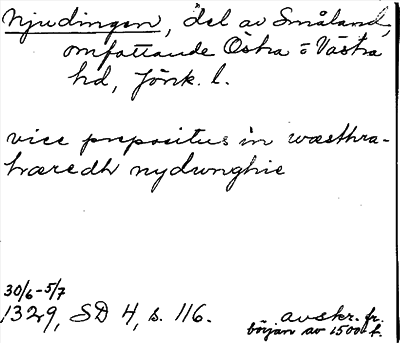 Njudingen, del av Småland,
omfattande Östra o Västra
hd, Jönk. l.
vice prepositus in wæsthra-
hæredh nydwnghie
30/6-5/7
1329, SD 4, s. 116.
avskr. fr.
början av 1500t.